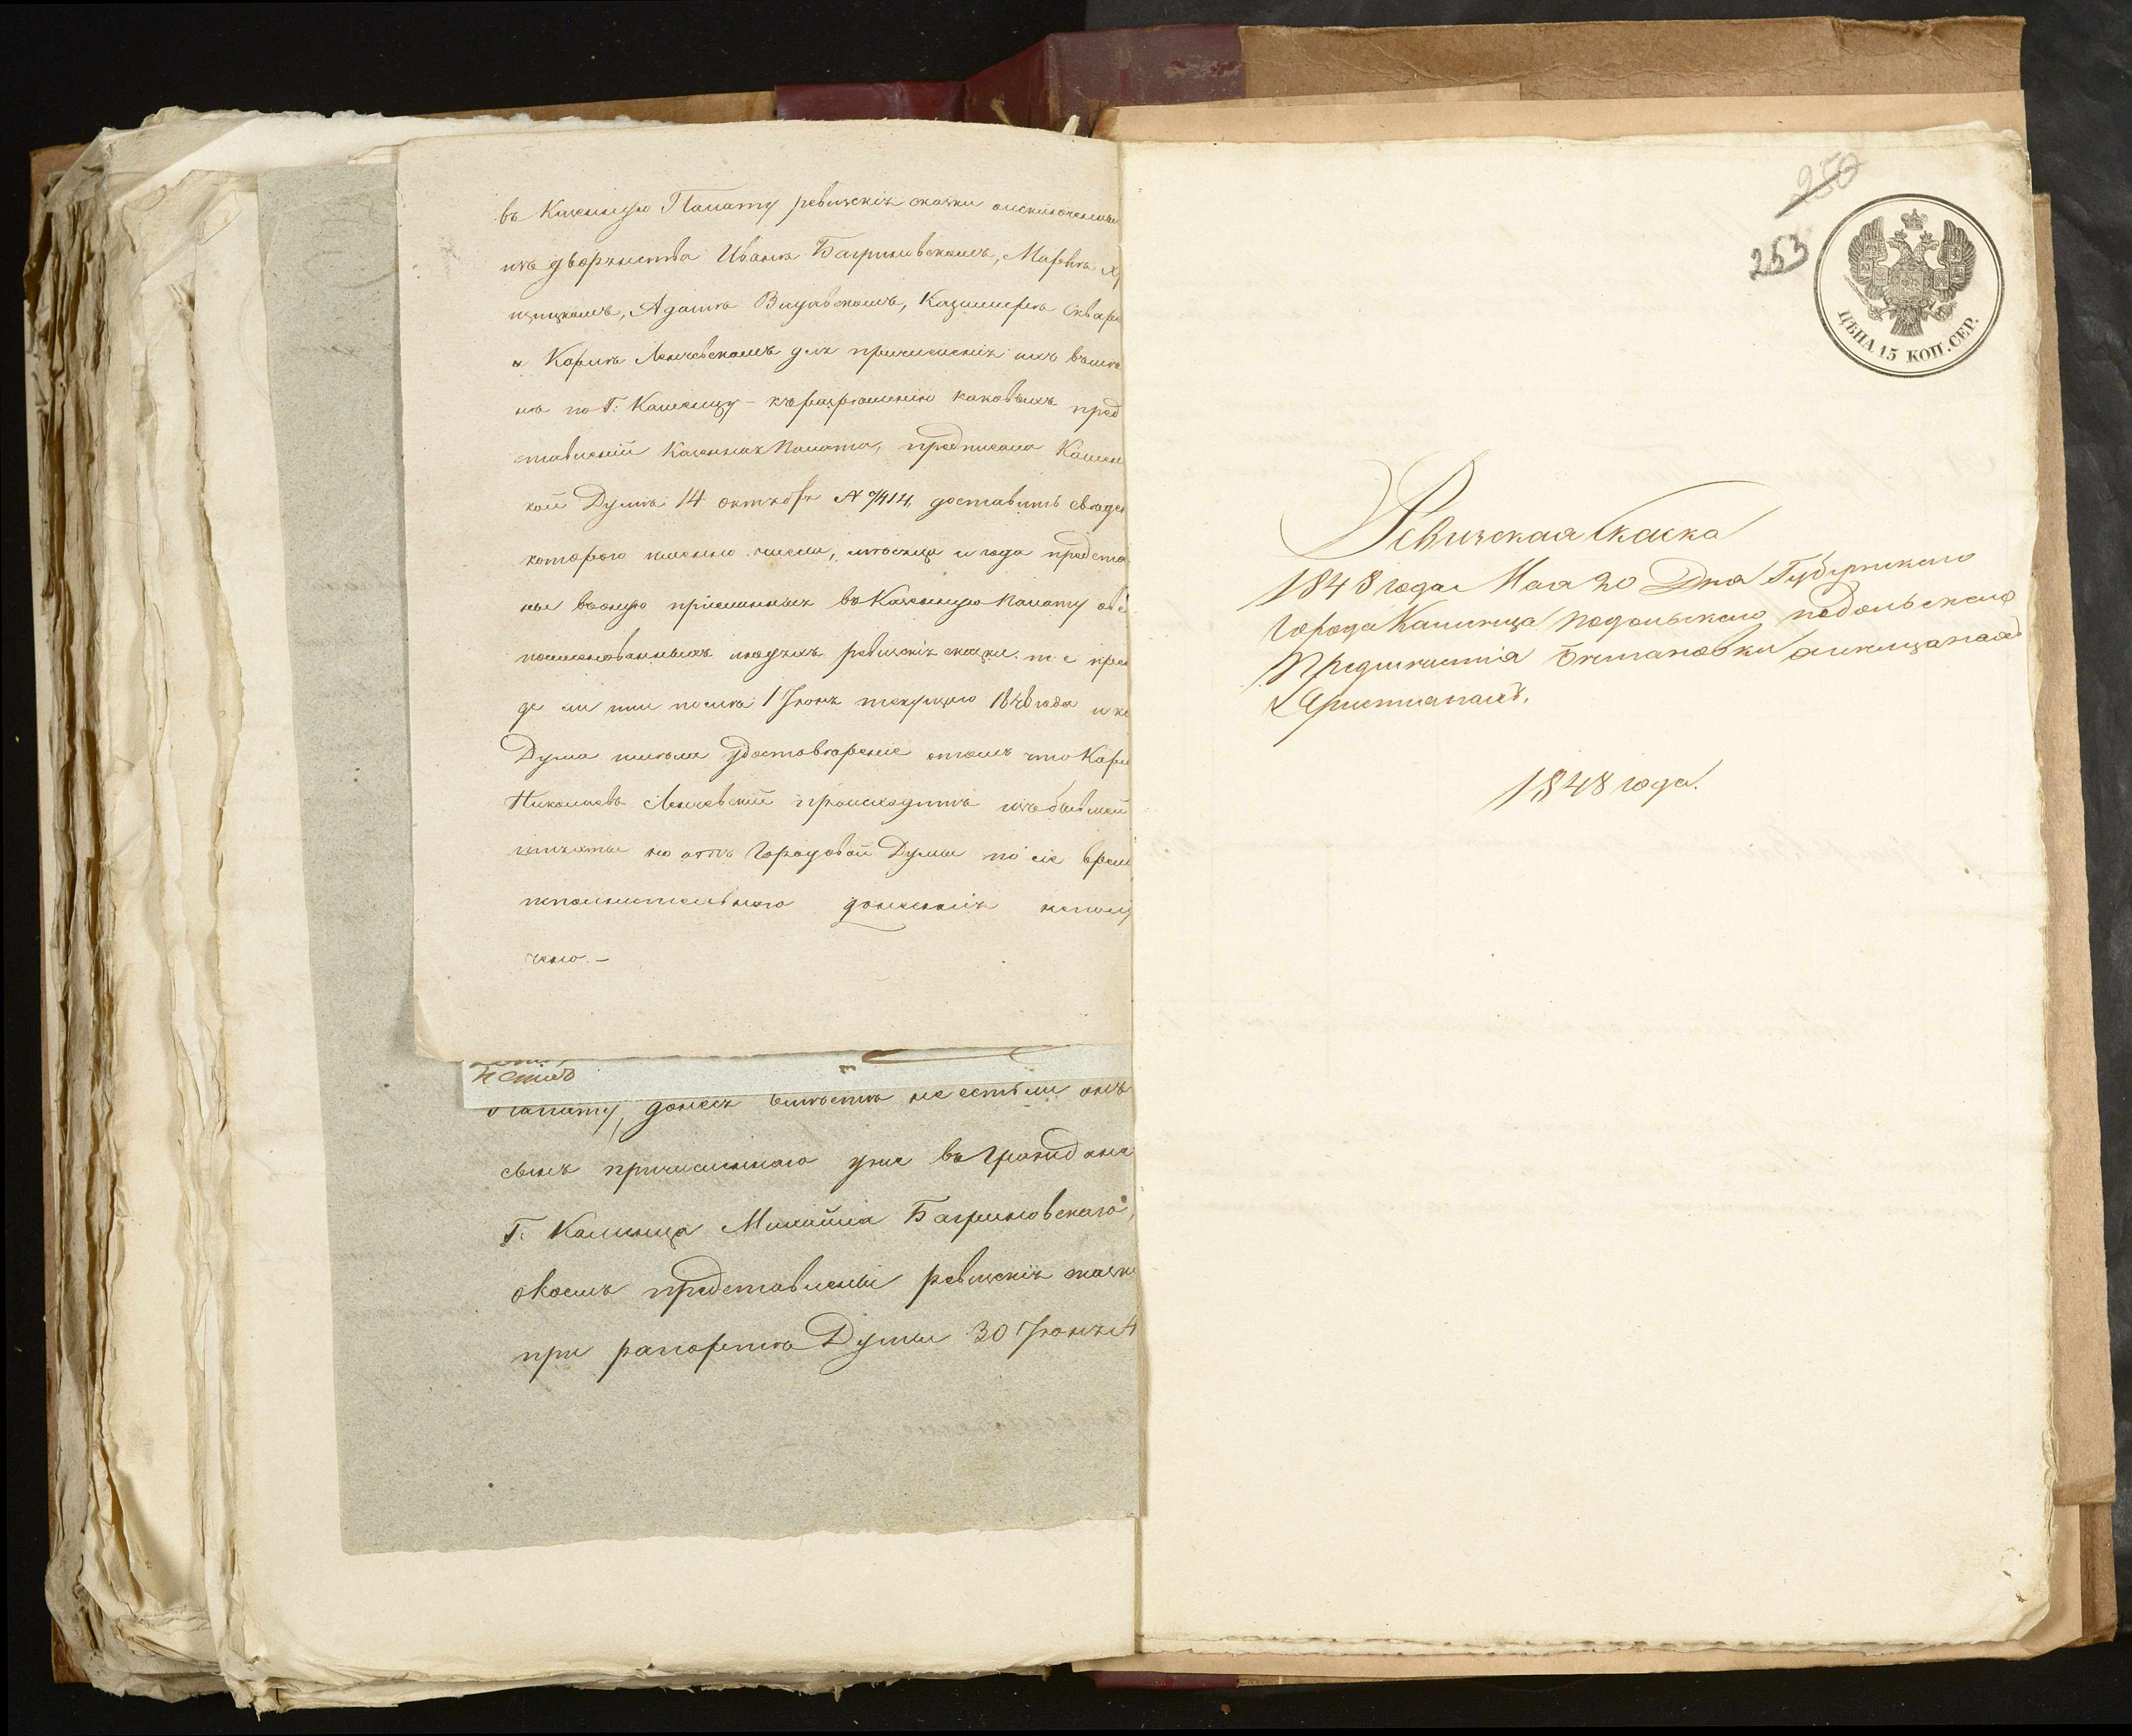 въ Казенную Палату ревизскія сказки о исключенныхъ
изъ дворянства Иванѣ Багриновскомъ, Матвѣѣ
Адамѣ Казимирѣ
и Карлѣ Лончевскомъ для причисленія ихъ
по Г: Каменцу – къ разрѣшенію каковыхъ пред
ставленій Казенная Палата, предписала Камен
кой Думѣ 14 октября № 7414, доставить свѣде
котораго именно числа, мѣсяца и года предста
ны въ оную присланныя въ Казенную Палату объ
поименованныхъ людяхъ ревизскія сказки. т. е. преж
де ли или послѣ 1 Іюня текущаго 1848 года и
Дума имѣла удостовѣреніе о томъ что Карлъ
Николаевъ Лончевскій происходитъ изъ бывшей
шляхты но отъ Городовой Думы по сіе время
исполнительнаго донесенія не полу
чено. –
Палату, донеся вмѣстѣ не есть ли онъ
сынъ причисленнаго уже въ Граждане
Г. Каменца Михаила Багриновскаго,
о коемъ представлены ревизскія сказки
при рапортѣ Думы 30 Іюня
250
253
ЦѢНА 15 КОП. СЕР.
Ревизская Сказка
1848 года Мая 20 Дня Губернскаго
Города Каменца Подольскаго подольскаго
Предмѣстія омѣщанахъ
Христианахъ.
1848 года.